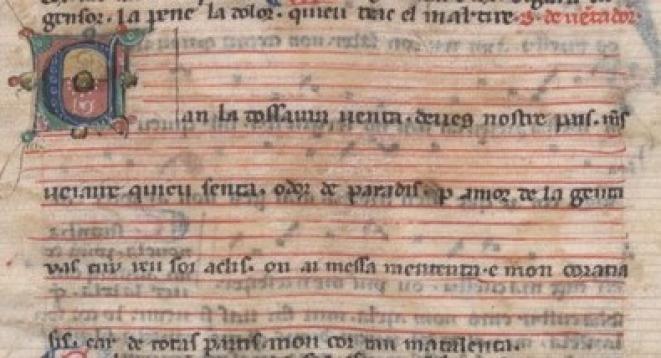 genſor. la pene la dolor. quieu trac el martire. B. de uētador
Can la doſſaura uenta. deues noſtre pais.
ueiaire quieu ſenta. odor de paradis. p amor de la genta
uas cuy yeu ſoi aclis. on ai meſſa mententa. e mon coratia
ſis. car de totas partis. mon cor matalenta.